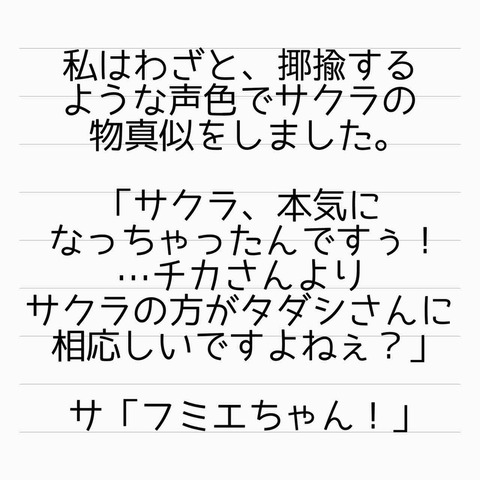 私はわざと、揶揄する
ような声色でサクラの
物真似をしました。
「サクラ、本気に
なっちゃったんですぅ！
…チカさんより
サクラの方がタダシさんに
相応しいですよねぇ？」
サ「フミエちゃん！」